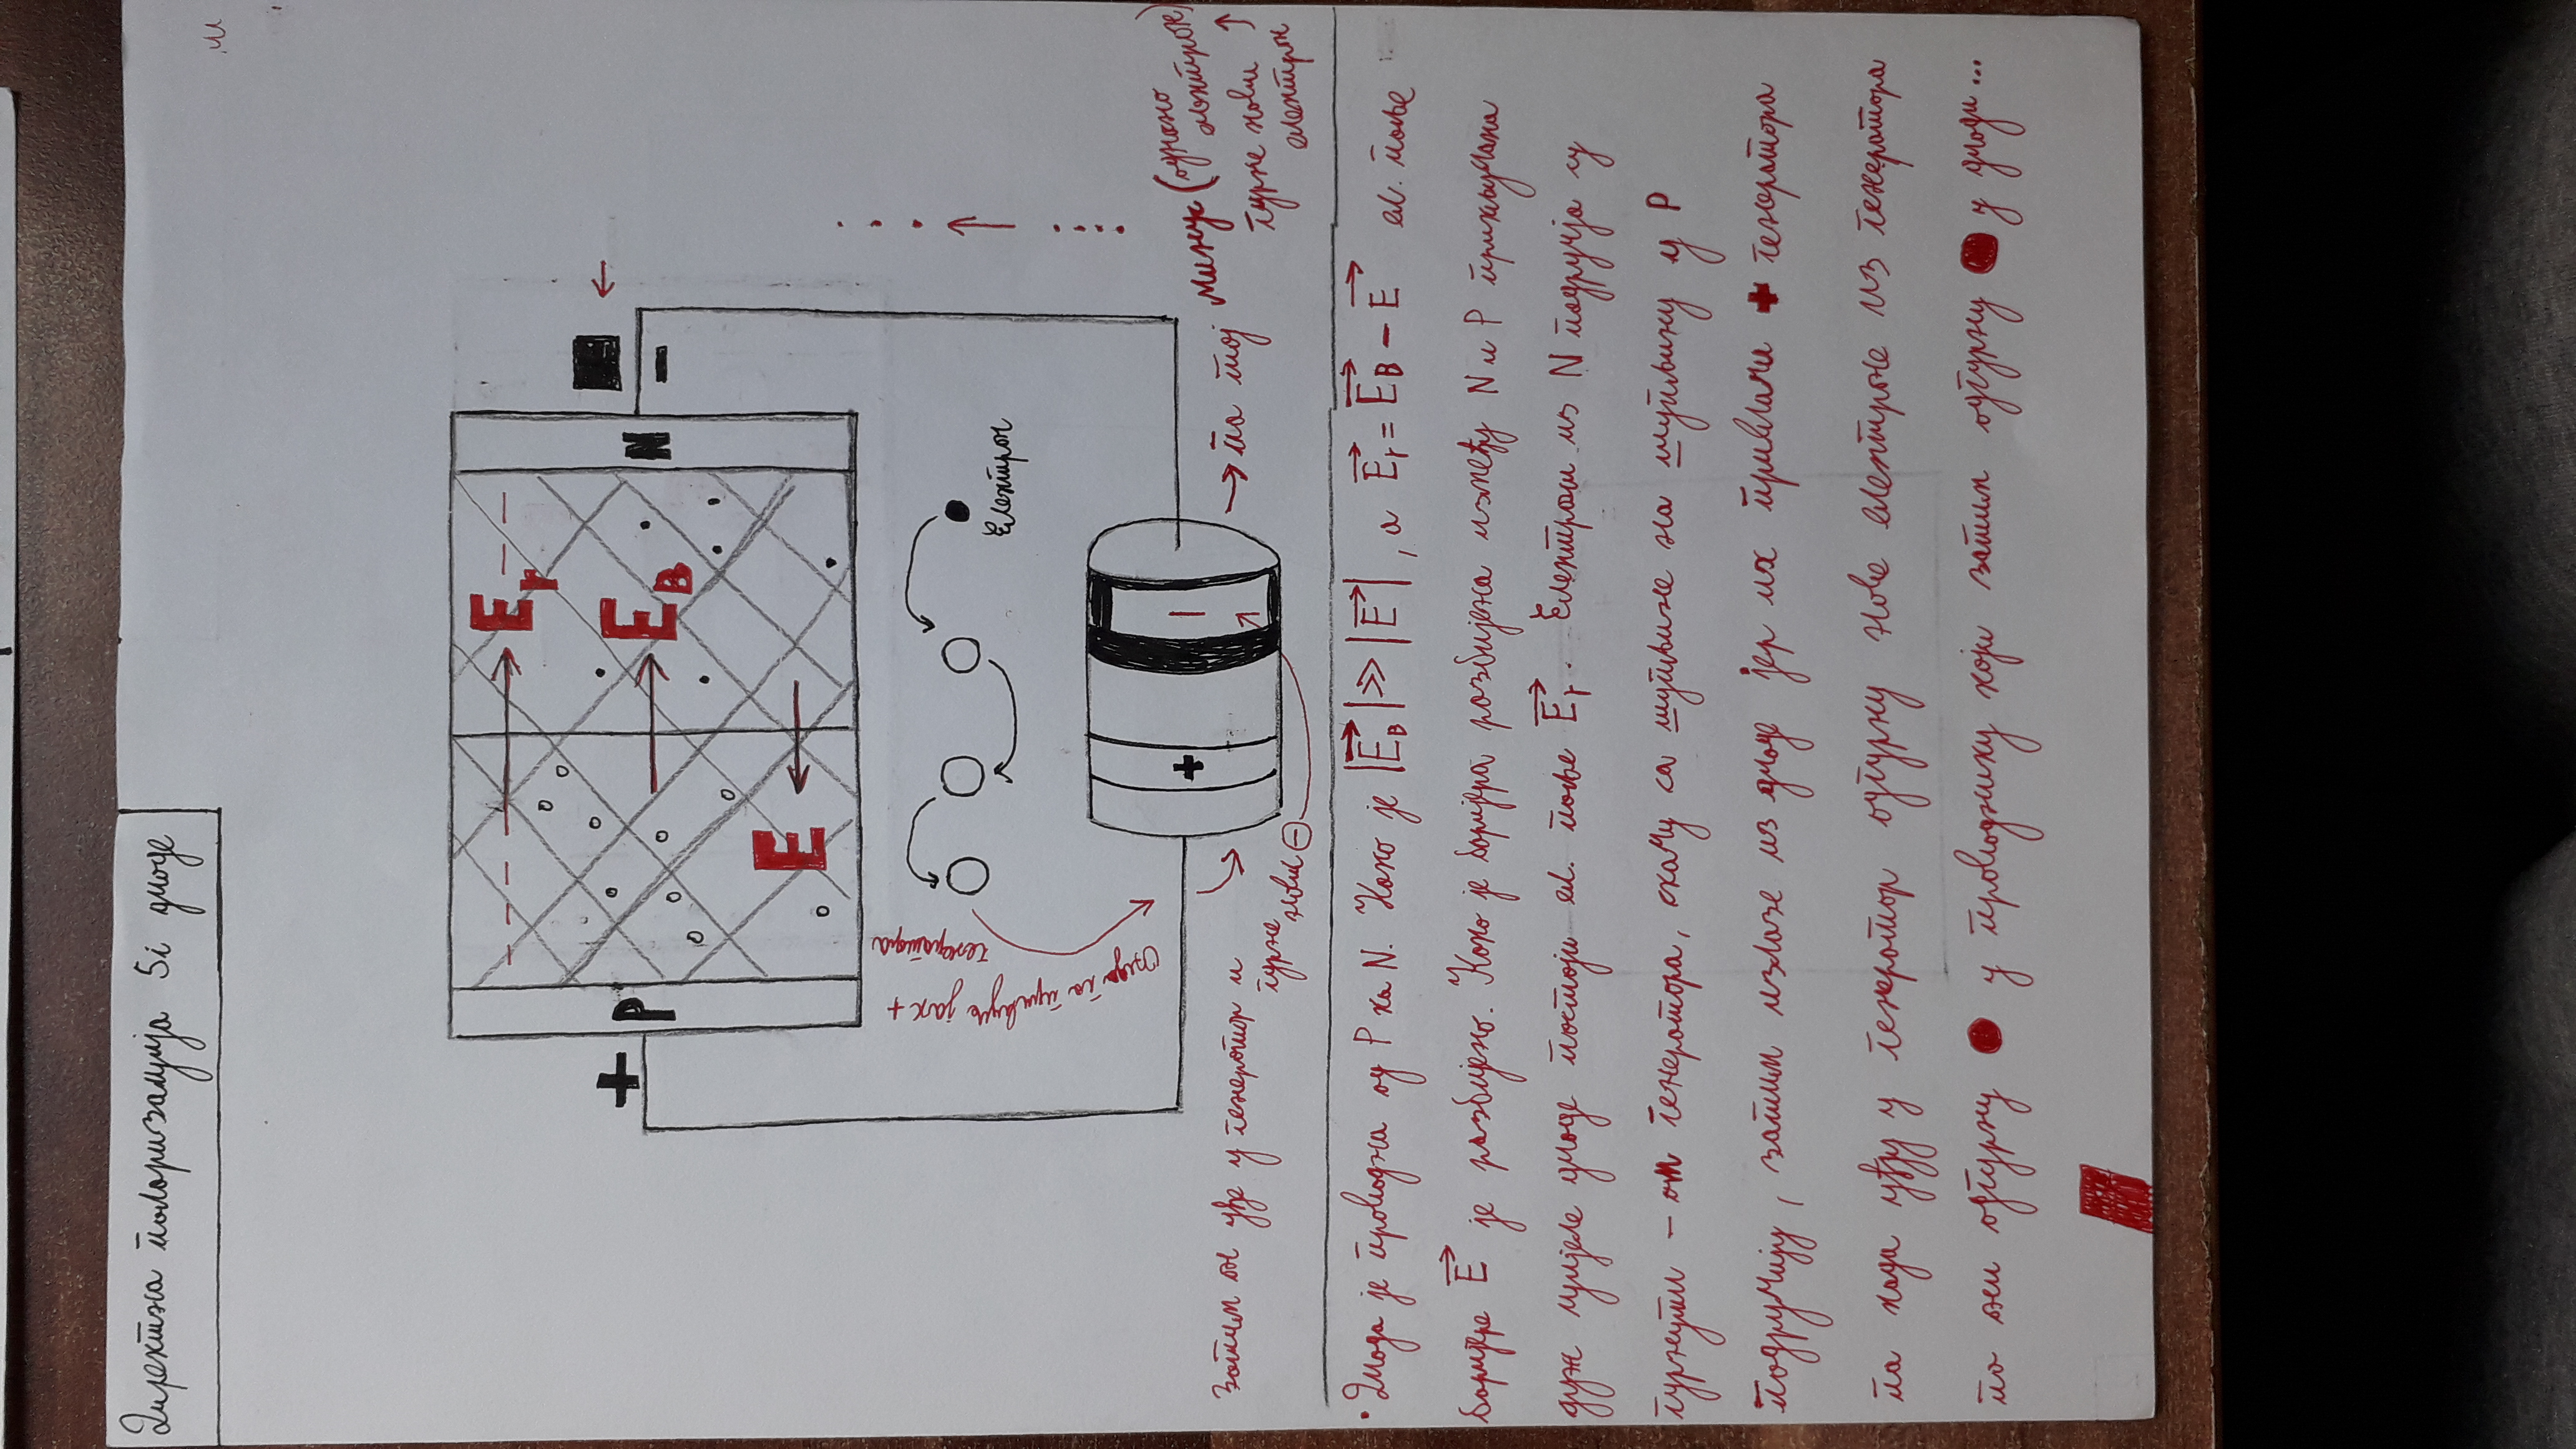 Директна поларизација Si диоде
E r
+
P
E B
N
−
E
Овдје га привуче јак +
генератора
Електрон
+
−
Затим он уђе у генератор и
гурне
нови −
па тај минус (односно
електрон)
гурне нови
електрон
• Диода је проводна од P ка N. Како је |E_B| >> |E|, а E_r = E_B − E ел. поље
баријере E је разбијено. Како је баријера разбијена између N и P прикључака
дуж цијеле диоде постоји ел. поље E_r. Електрони из N подручја су
гурнути − ом генератора, скачу са шупљине на шупљину у P
подручију, затим излазе из диоде јер их привлачи + генератора
па када уђу у генератор одгурну нове електроне из генератора
па они одгурну ● у проводнику који затим одгурну ● у диоди...